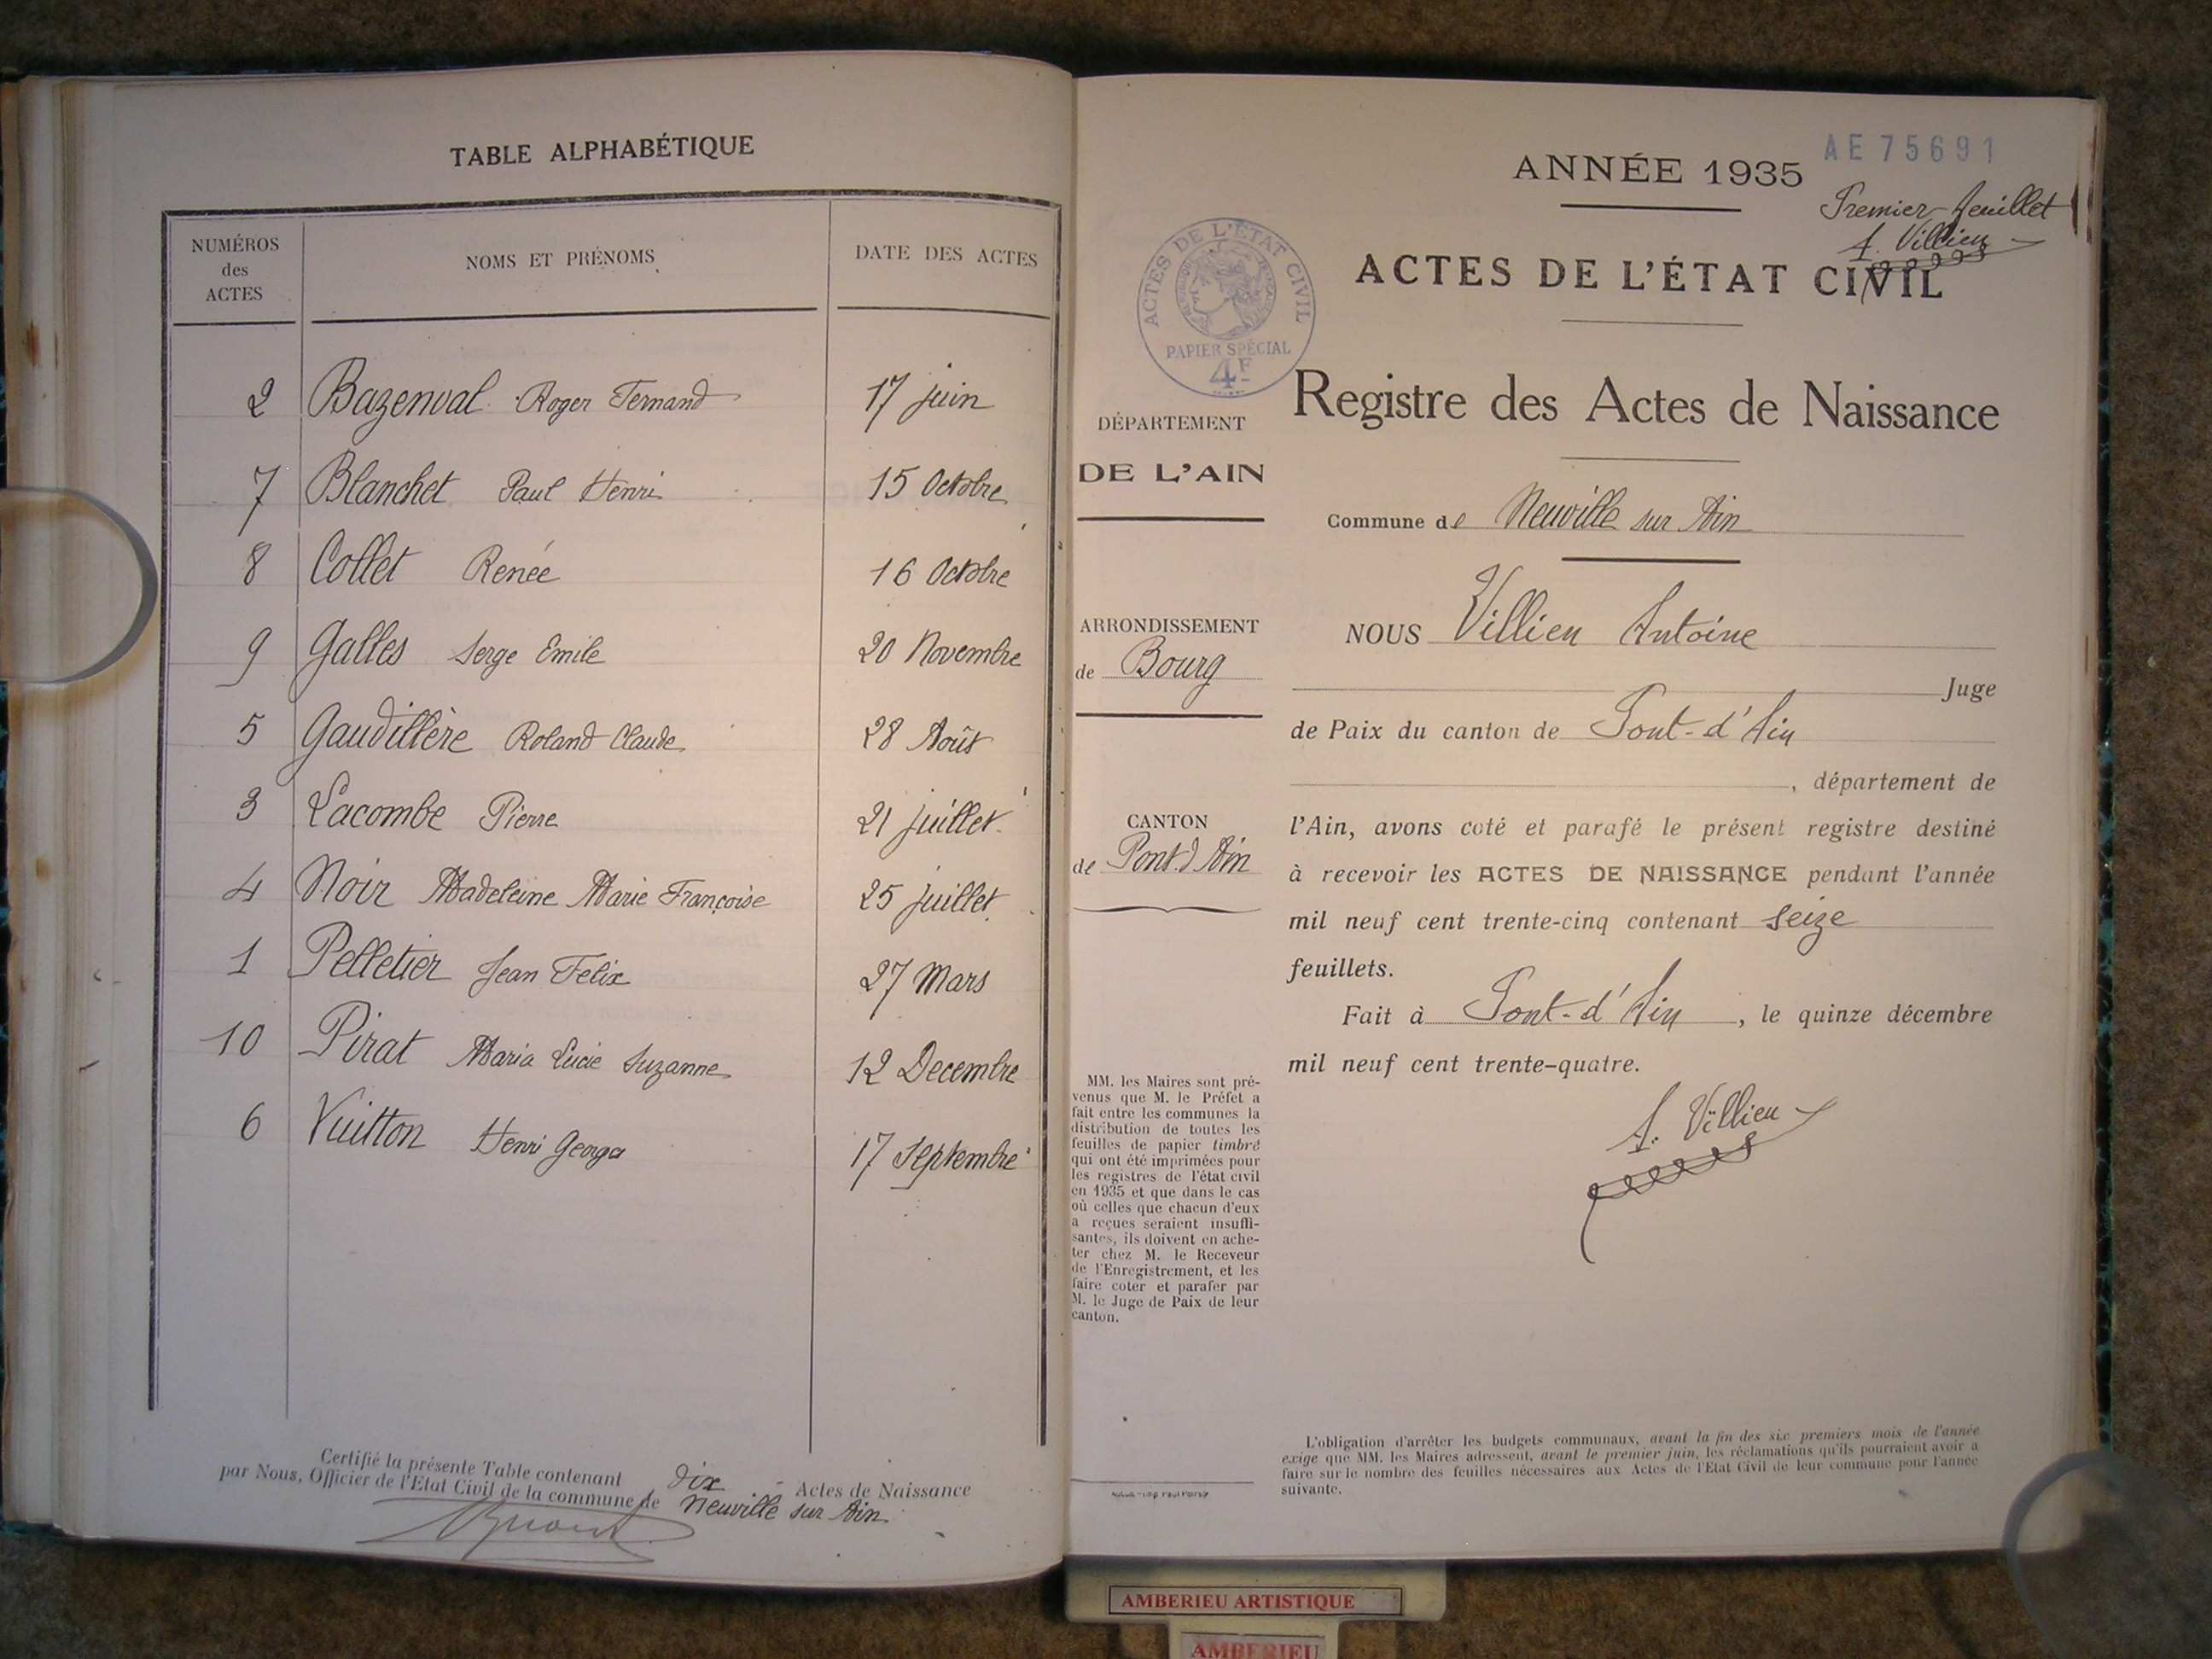 TABLE ALPHABÉTIQUE
NUMÉROS des ACTES NOMS ET PRÉNOMS DATE DES ACTES
2 Bazenval Roger Fernand 17 juin
7 Blanchet Paul Henri 15 Octobre
8 Collet Renée 16 Octobre
9 Galles Serge Emile 20 Novembre
5 Gaudillère Roland Claude 28 Août
3 Lacombe Pierre 21 juillet
4 Noir Madeleine Marie Françoise 25 juillet
1 Pelletier Jean Felix 27 Mars
10 Pirat Maria Lucie Suzanne 12 Decembre
6 Vuitton Henri 17 Septembre
Certifié la présente Table contenant dix Actes de Naissance
par Nous, Officier de l'Etat Civil de la commune de Neuville sur Ain
AE 75691
ANNÉE 1935
Premier feuillet
A. Villien
ACTES DE L'ÉTAT CIVIL
ACTES DE L'ÉTAT CIVIL
PAPIER SPÉCIAL
4F
Registre des Actes de Naissance
DÉPARTEMENT
DE L'AIN
Commune de Neuville sur Ain
ARRONDISSEMENT
de Bourg
NOUS Villien Antoine
Juge
de Paix du canton de Pont-d'Ain
, département de
l'Ain, avons coté et parafé le présent registre destiné
à recevoir les ACTES DE NAISSANCE pendant l'année
mil neuf cent trente-cinq contenant seize
feuillets.
Fait à Pont-d'Ain, le quinze décembre
mil neuf cent trente-quatre.
A. Villien
CANTON
de Pont d'Ain
MM. les Maires sont pré-
venus que M. le Préfet a
fait entre les communes la
distribution de toutes les
feuilles de papier timbré
qui ont été imprimées pour
les registres de l'état civil
en 1935 et que dans le cas
où celles que chacun d'eux
a reçues seraient insuffi-
santes, ils doivent en ache-
ter chez M. le Receveur
de l'Enregistrement, et les
faire coter et parafer par
M. le Juge de Paix de leur
canton.
L'obligation d'arrêter les budgets communaux, avant la fin des six premiers mois de l'année
exige que MM. les Maires adressent, avant le premier juin, les réclamations qu'ils pourraient avoir à
faire sur le nombre des feuilles nécessaires aux Actes de l'Etat Civil de leur commune pour l'année
suivante.
AMBERIEU ARTISTIQUE
AMBERIEU